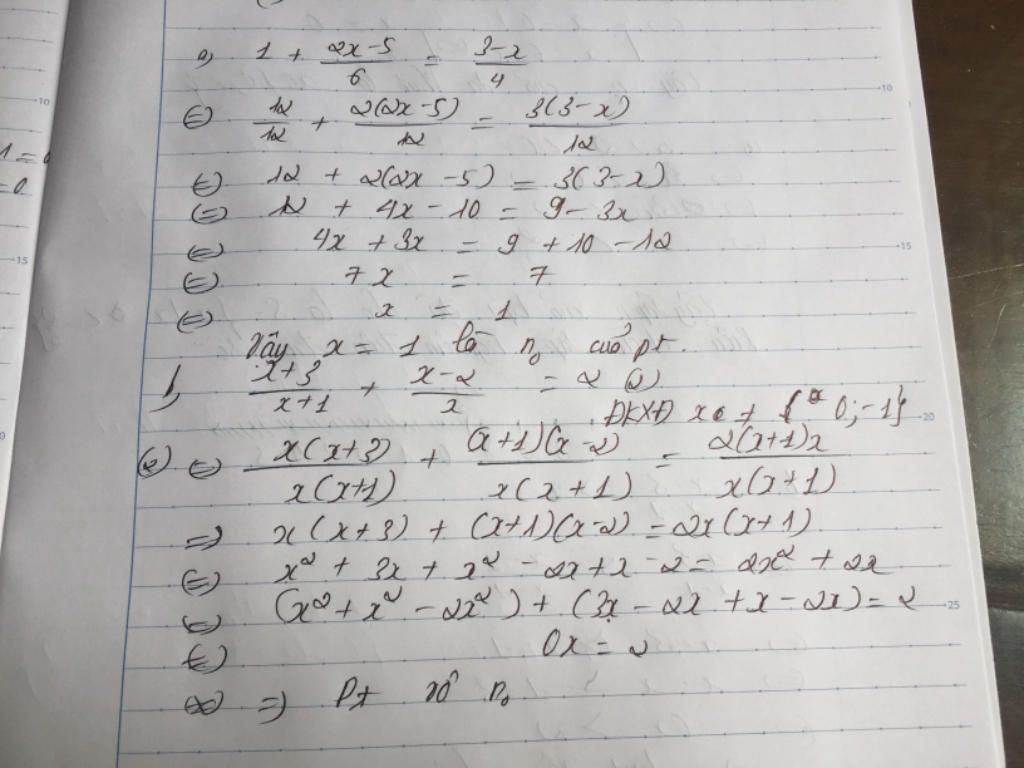 a, 1 + (2x-5)/6 = (3-x)/4
⇔ 12/12 + 2(2x-5)/12 = 3(3-x)/12
⇔ 12 + 2(2x-5) = 3(3-x)
⇔ 12 + 4x - 10 = 9 - 3x
⇔ 4x + 3x = 9 + 10 - 12
⇔ 7x = 7
⇔ x = 1
Vậy x = 1 là n₀ của pt.
b, (x+3)/(x+1) + (x-2)/x = 2 (2)
ĐKXĐ x ≠ {0; -1}
(2) ⇔ x(x+3)/x(x+1) + (x+1)(x-2)/x(x+1) = 2(x+1)x/x(x+1)
⇒ x(x+3) + (x+1)(x-2) = 2x(x+1)
⇔ x² + 3x + x² - 2x + x - 2 = 2x² + 2x
⇔ (x² + x² - 2x²) + (3x - 2x + x - 2x) = 2
⇔ 0x = 2
⇒ Pt vô n₀
1 = 0
= 0
10
15
20
25
10
15